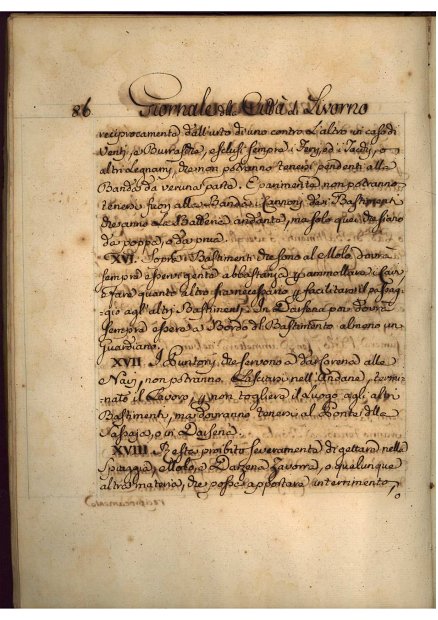 86 Giornale della Città di Livorno
reciprocamente dall'urto di uno contro l'altro in caso di
Venti, e Burrasche, esclusi sempre i Feri, ed i Tacchi, o
altri Legnami, che non potranno tenersi pendenti alla
Banda da veruna parte. E parimente non potranno
tenersi fuori alla Banda i Cannoni dei Bastimenti
che sanno la Batteria andante, ma solo quei che sono
da poppa, o da prua.
XVI. Sopra i Bastimenti che sono al Molo dovrà
sempre esservi gente abbastanza p ammollare i Cavi
e fare quanto altro sia necessario p facilitare il passag-
gio agli altri Bastimenti. In Darsena poi dovrà
sempre essere a Bordo del Bastimento almeno un
Guardiano.
XVII. I Puntoni, che servono a dar Carena alle
Navi, non potranno Lasciarsi nell'Andane, termi-
nato il Lavoro, p non togliere il luogo agli altri
Bastimenti, ma dovranno tenersi al Ponte della
Sassaia, o in Darsena
XVIII. Resta proibito severamente di gettare nella
Spiaggia, Molo, e Darsena Zavorra, o qualunque
altra materia, che possa apportare interrimento,